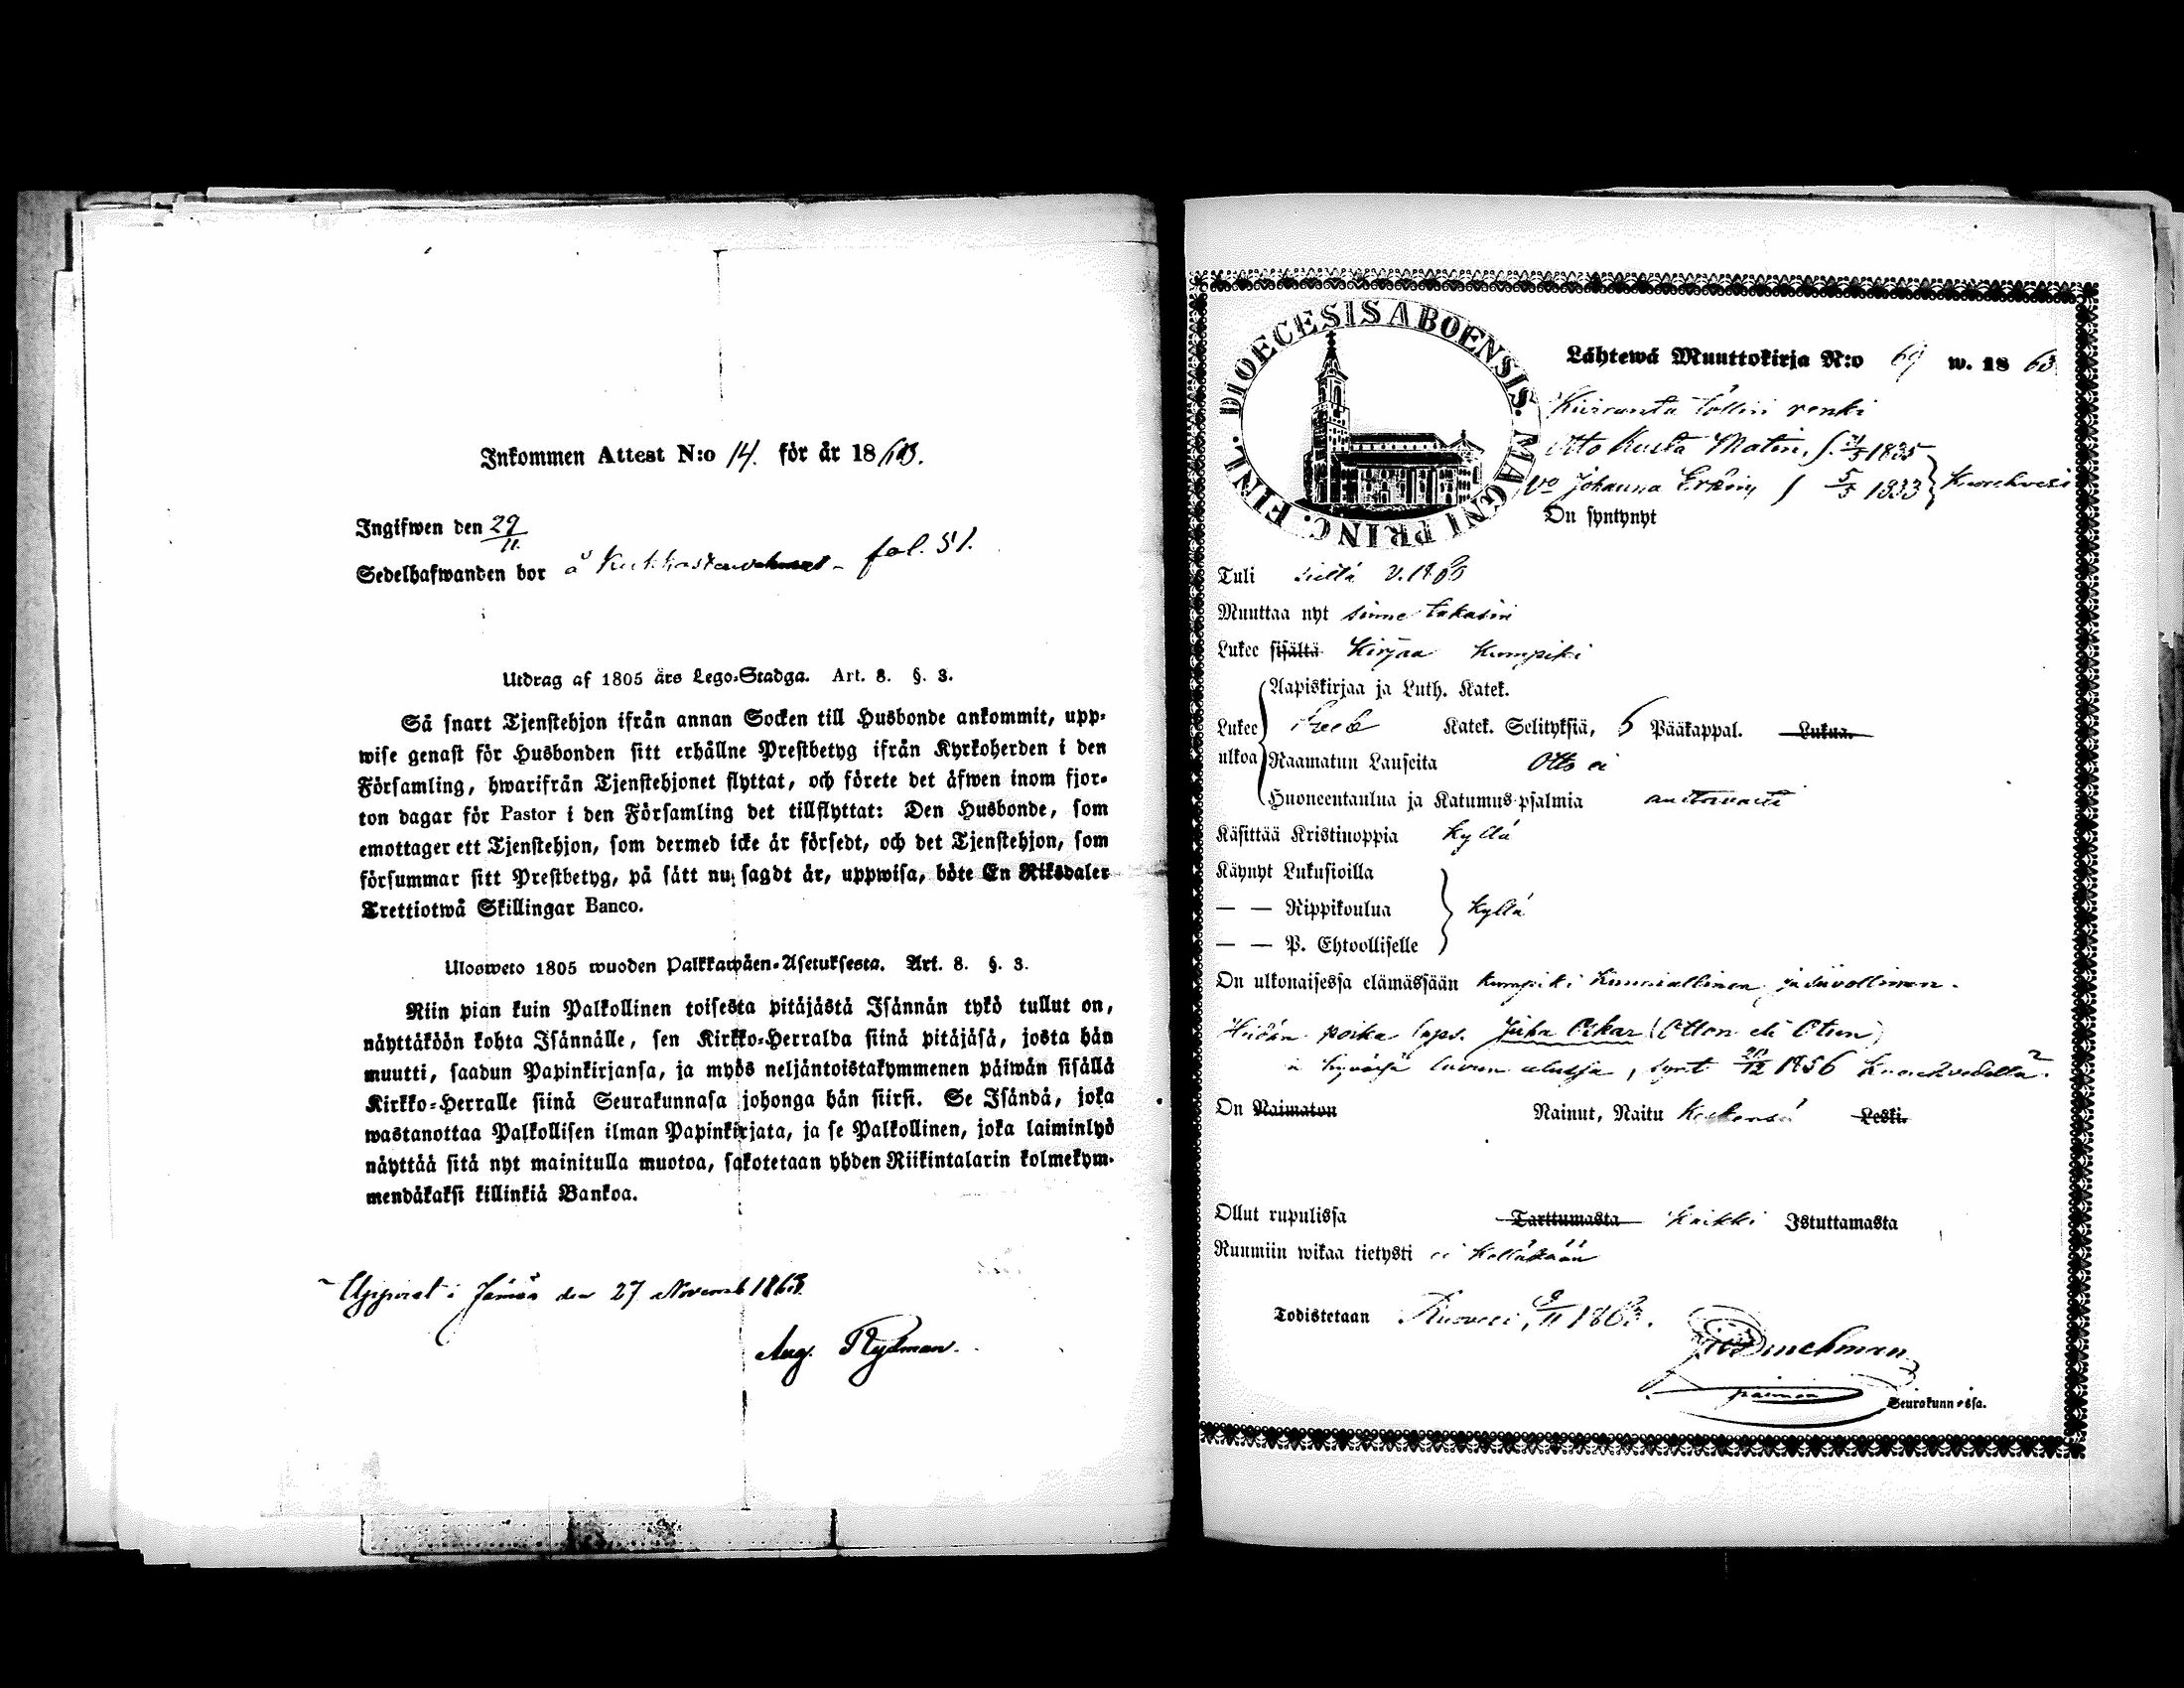 Inkommen Attest N:o 14. för år 1863.
Ingifwen den 29/11.
Sedelhafwanden bor å fol. 51.
Utdrag af 1805 års Lego-Stadga. Art. 8. §. 3.
Så snart Tjenstehjon ifrån annan Socken till Husbonde ankommit, upp-
wise genast för Husbonden sitt erhållne Prestbetyg ifrån Kyrkoherden i den
Församling, hwarifrån Tjenstehjonet flyttat, och förete det äfwen inom fjor-
ton dagar för Pastor i den Församling det tillflyttat: Den Husbonde, som
emottager ett Tjenstehjon, som dermed icke är försedt, och det Tjenstehjon, som
försummar sitt Prestbetyg, på sätt nu sagdt är, uppwisa, böte En Riksdaler
Trettiotwå Skillingar Banco.
Ulosweto 1805 wuoden Palkkawäen-Asetuksesta. Art. 8. §. 3.
Niin pian kuin Palkollinen toisesta pitäjästä Isännän tykö tullut on,
näyttäköön kohta Isännälle, sen Kirkko-Herralda siinä pitäjäsä, josta hän
muutti, saadun Papinkirjansa, ja myös neljäntoistakymmenen päiwän sisällä
Kirkko-Herralle siinä Seurakunnasa johonga hän siirsi. Se Isändä, joka
wastanottaa Palkollisen ilman Papinkirjata, ja se Palkollinen, joka laiminlyö
näyttää sitä nyt mainitulla muotoa, sakotetaan yhden Riikintalarin kolmekym-
mendäkaksi killinkiä Bankoa.
Uppwist i Jämsä den 27 Novemb 1863.
Aug. Rydman.
DIOECESIS ABOENSIS. MAGNI PRINC. FINL.
Lähtewä Muuttokirja N:o 69 w. 1863
renki
Otto Kusta Matin. 1835
Vo Johanna Erkin 5/5 1833 } Kuorehvesi
On syntynyt
Tuli sieltä v. 1860
Muuttaa nyt sinne takasin
Lukee sisältä Kirjaa kumpiki
Aapiskirjaa ja Luth. Katek.
Lukee Katek. Selityksiä, 5 Pääkappal. Lukua.
ulkoa Raamatun Lauseita Otto ei
Huoneentaulua ja Katumus-psalmia auttavasti
Käsittää Kristinoppia kyllä
Käynyt Lukusioilla
— — Rippikoulua } kyllä
— — P. Ehtoolliselle
On ulkonaisessa elämässään kumpiki kunniallinen ja siivollinen.
Heidän poika laps. Juha Oskar (Otton eli Otun)
luvun alussa, synt 1856 Kuorehvedellä.
On Naimaton Nainut, Naitu Keskensä Leski.
Ollut rupulissa Tarttumasta Kaikki Istuttamasta
Ruumiin wikaa tietysti ei kellákään
Todistetaan Ruovesi, 9/11 1863.
paimen
Seurakunnassa.